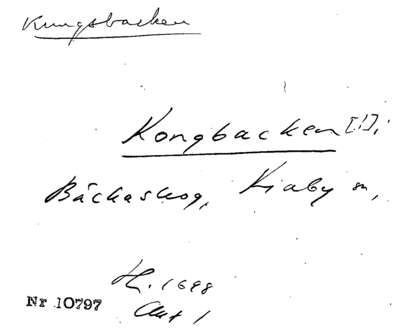 Kungsbacken
Kongbacken [!],
Bäckaskog, Kiaby sn,
H. 1698
Akt 1
Nr 10797